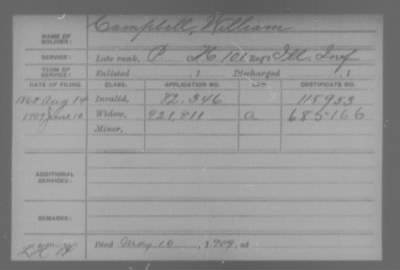 Campbell, William
NAME OF SOLDIER:
SERVICE: Late rank, P H 101 Reg't Ill. Inf
TERM OF SERVICE: Enlisted , 1 Discharged , 1
DATE OF FILING. CLASS. APPLICATION NO. LAW. CERTIFICATE NO.
1868 Aug 14 Invalid, 82.346 115953
1909 June 10 Widow, 921,811 a 685166
Minor,
ADDITIONAL SERVICES:
REMARKS:
Died May 10, 1909, at